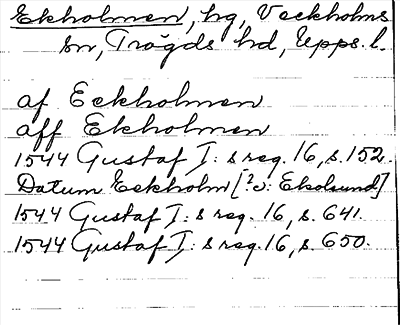 Ekholmen, hg, Veckholms
sn, Trögds hd, Upps. l.
af Eckholmen
aff Ekholmen
1544 Gustaf I: s reg. 16, s. 152.
Datum Eckholm [? ɔ: Ekolsund]
1544 Gustaf I: s reg. 16, s. 641.
1544 Gustaf I: s reg. 16, s. 650.